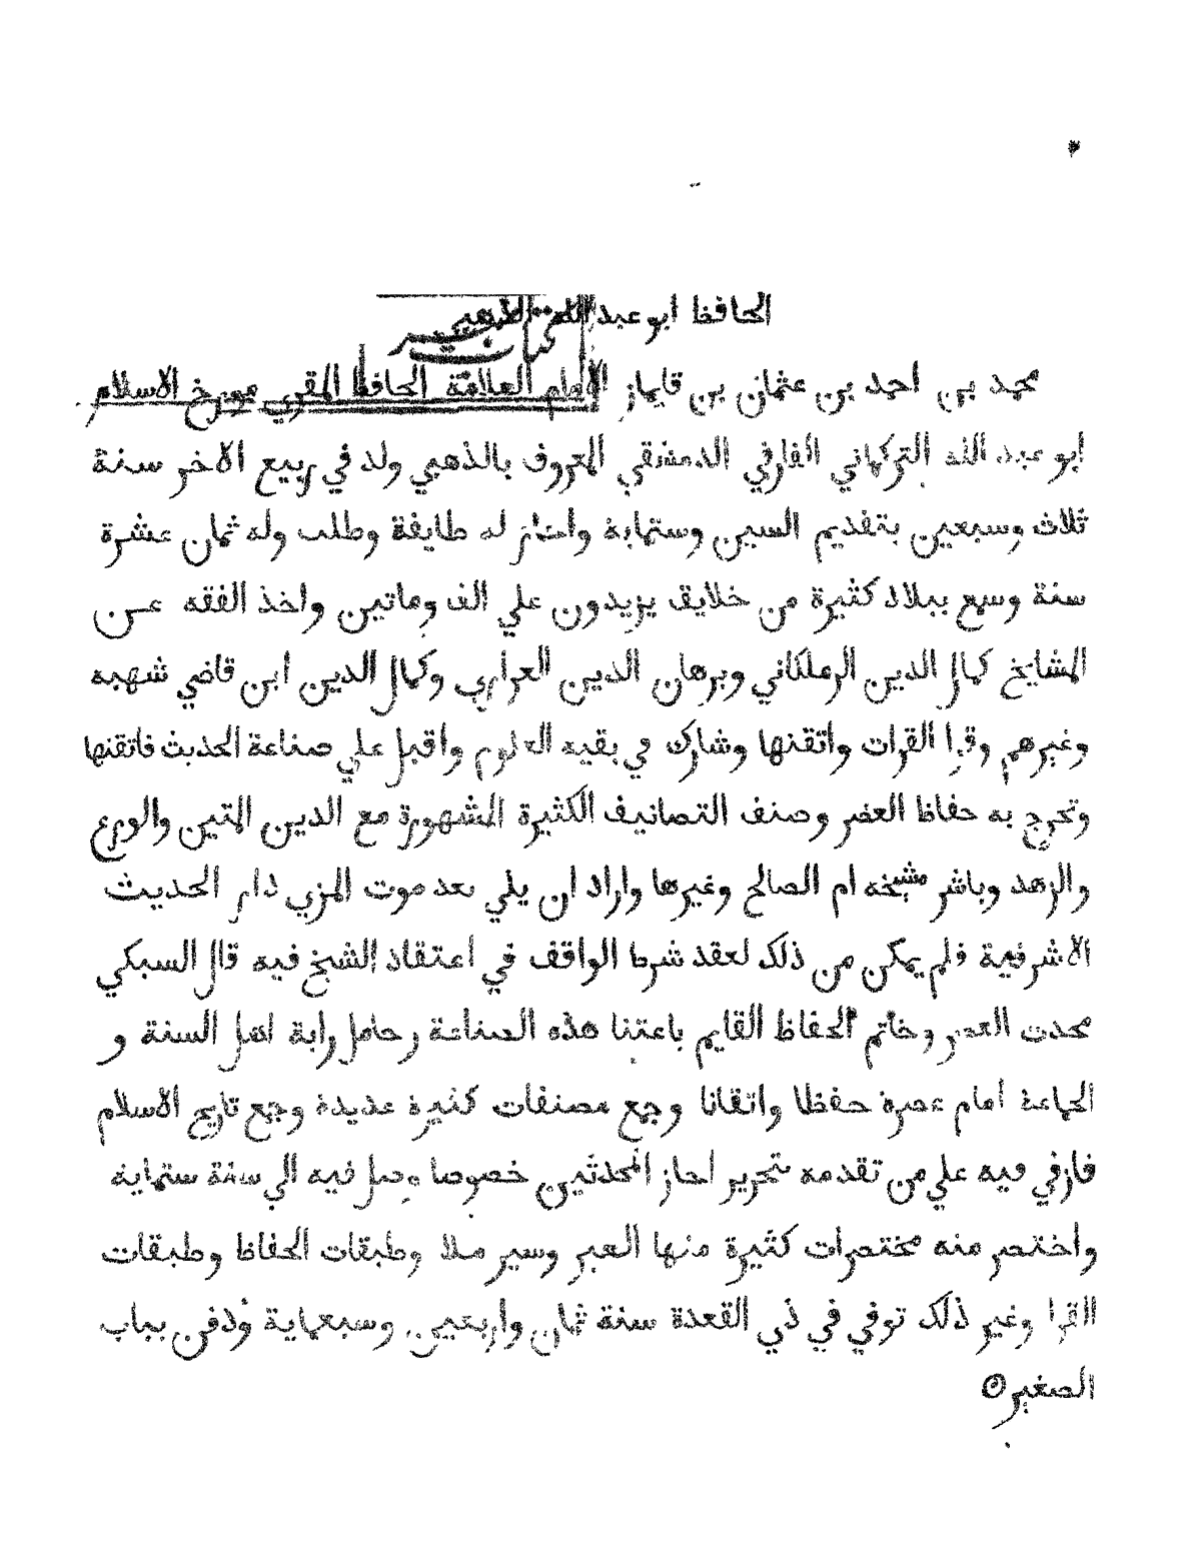 الحافظ ابو عبد الله الذهبي
محمد بن احمد بن عثمان بن قايماز الامام العلامة الحافظ المقري مورخ الاسلام
ابو عبد الله التركماني الفارقي الدمشقي المعروف بالذهبي ولد في ربيع الاخر سنة
ثلاث وسبعين بتقديم السين وستماية واجاز له طايفة وطلب وله ثمان عشرة
سنة وسمع ببلاد كثيرة من خلايق يزيدون علي الف وماتين واخذ الفقه عن
المشايخ كمال الدين الزملكاني وبرهان الدين الفزاري وكمال الدين ابن قاضي شهبه
وغيرهم وقرا القرات واتقنها وشارك في بقيه العلوم واقبل علي صناعة الحديث فاتقنها
وتخرج به حفاظ العصر وصنف التصانيف الكثيرة المشهورة مع الدين المتين والورع
والزهد وباشر مشيخه ام الصالح وغيرها واراد ان يلي بعد موت المزي دار الحديث
الاشرفية فلم يمكن من ذلك لفقد شرط الواقف في اعتقاد الشيخ فيه قال السبكي
محدث العصر وخاتم الحفاظ القايم باعتنا هذه الصناعة وحامل راية اهل السنة و
الجماعة امام عصره حفظا واتقانا وجمع مصنفات كثيرة عديدة وجمع تاريخ الاسلام
فازفي فيه علي من تقدمه بتحرير اخبار المحدثين خصوصا وصل فيه الي سنة ستمايه
واختصر منه مختصرات كثيرة منها العبر وسير ملا وطبقات الحفاظ وطبقات
القرا وغير ذلك توفي في ذي القعدة سنة ثمان واربعين وسبعماية ودفن بباب
الصغير